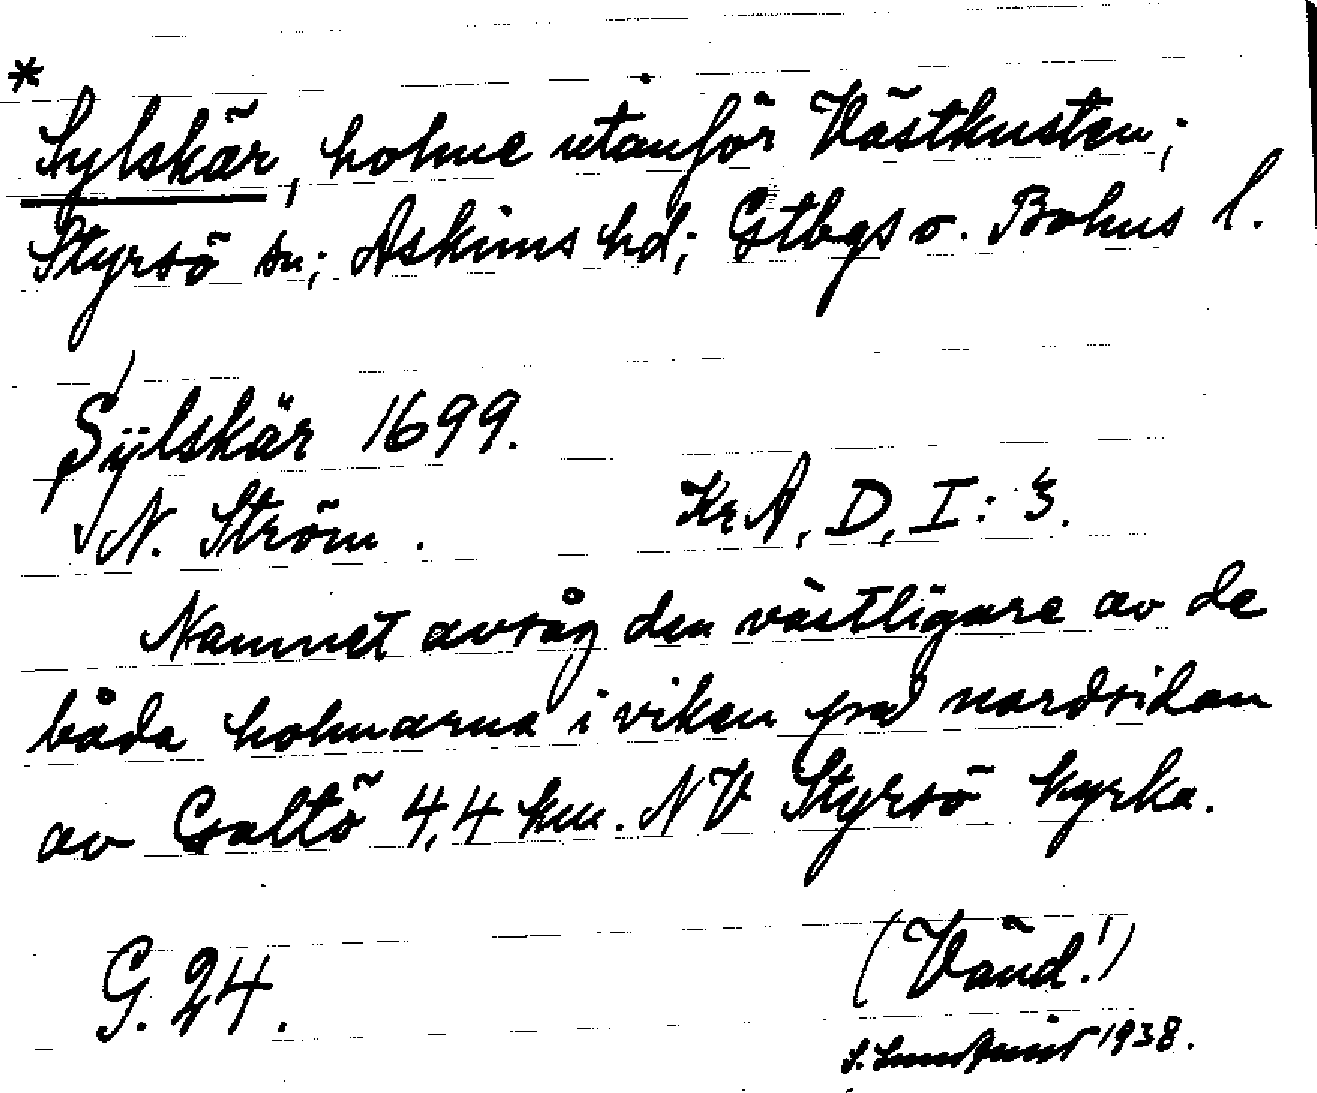 *
Sylskär, holme utanför Västkusten;
Styrsö sn; Askims hd; Gtbgs o. Bohus l.
Sÿlskär 1699.
N. Ström. Kr.A, D, I: 3.
Namnet avsåg den västligare av de
båda holmarna i viken på nordsidan
av Galtö 4,4 km. NV Styrsö kyrka.
G. 24. (Vänd!)
S. Lundqvist 1938.